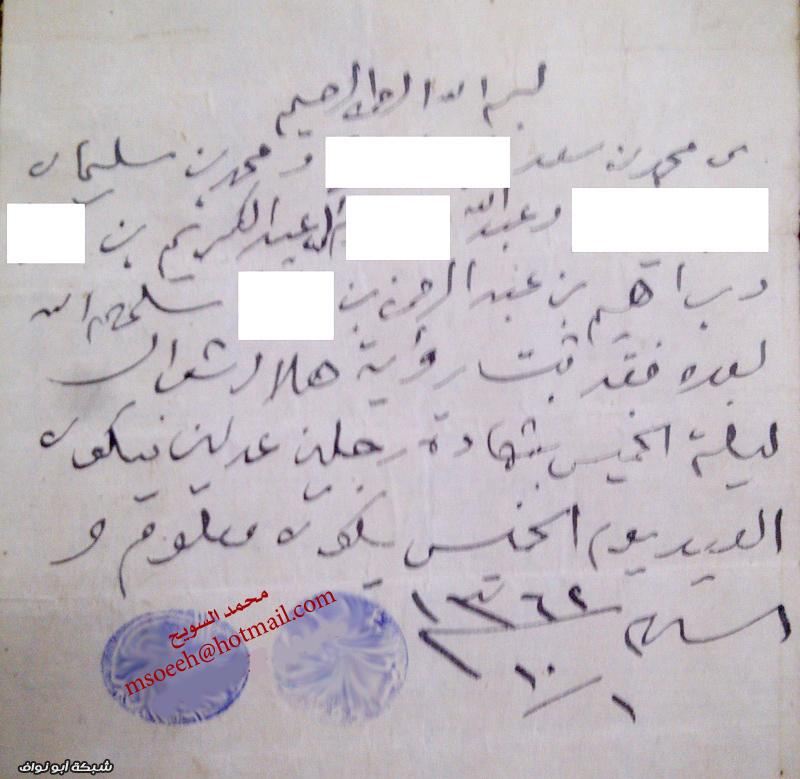 بسم الله الرحمن الرحيم
محمد بن سعد ومحمد بن سليمان
وعبدالله عبدالكريم بن
وبراهيم بن عبدالرحمن بن سلمهم الله
بعده فقد ثبت رؤية هلال شوال
ليلة الخميس بشهادة رجلين عدلين فيكون
العيد يوم الخميس يكون معلوم و
السلام ١٣٦٢
١٠/١
محمد السويح
msoeeh@hotmail.com
شبكة أبو نواف